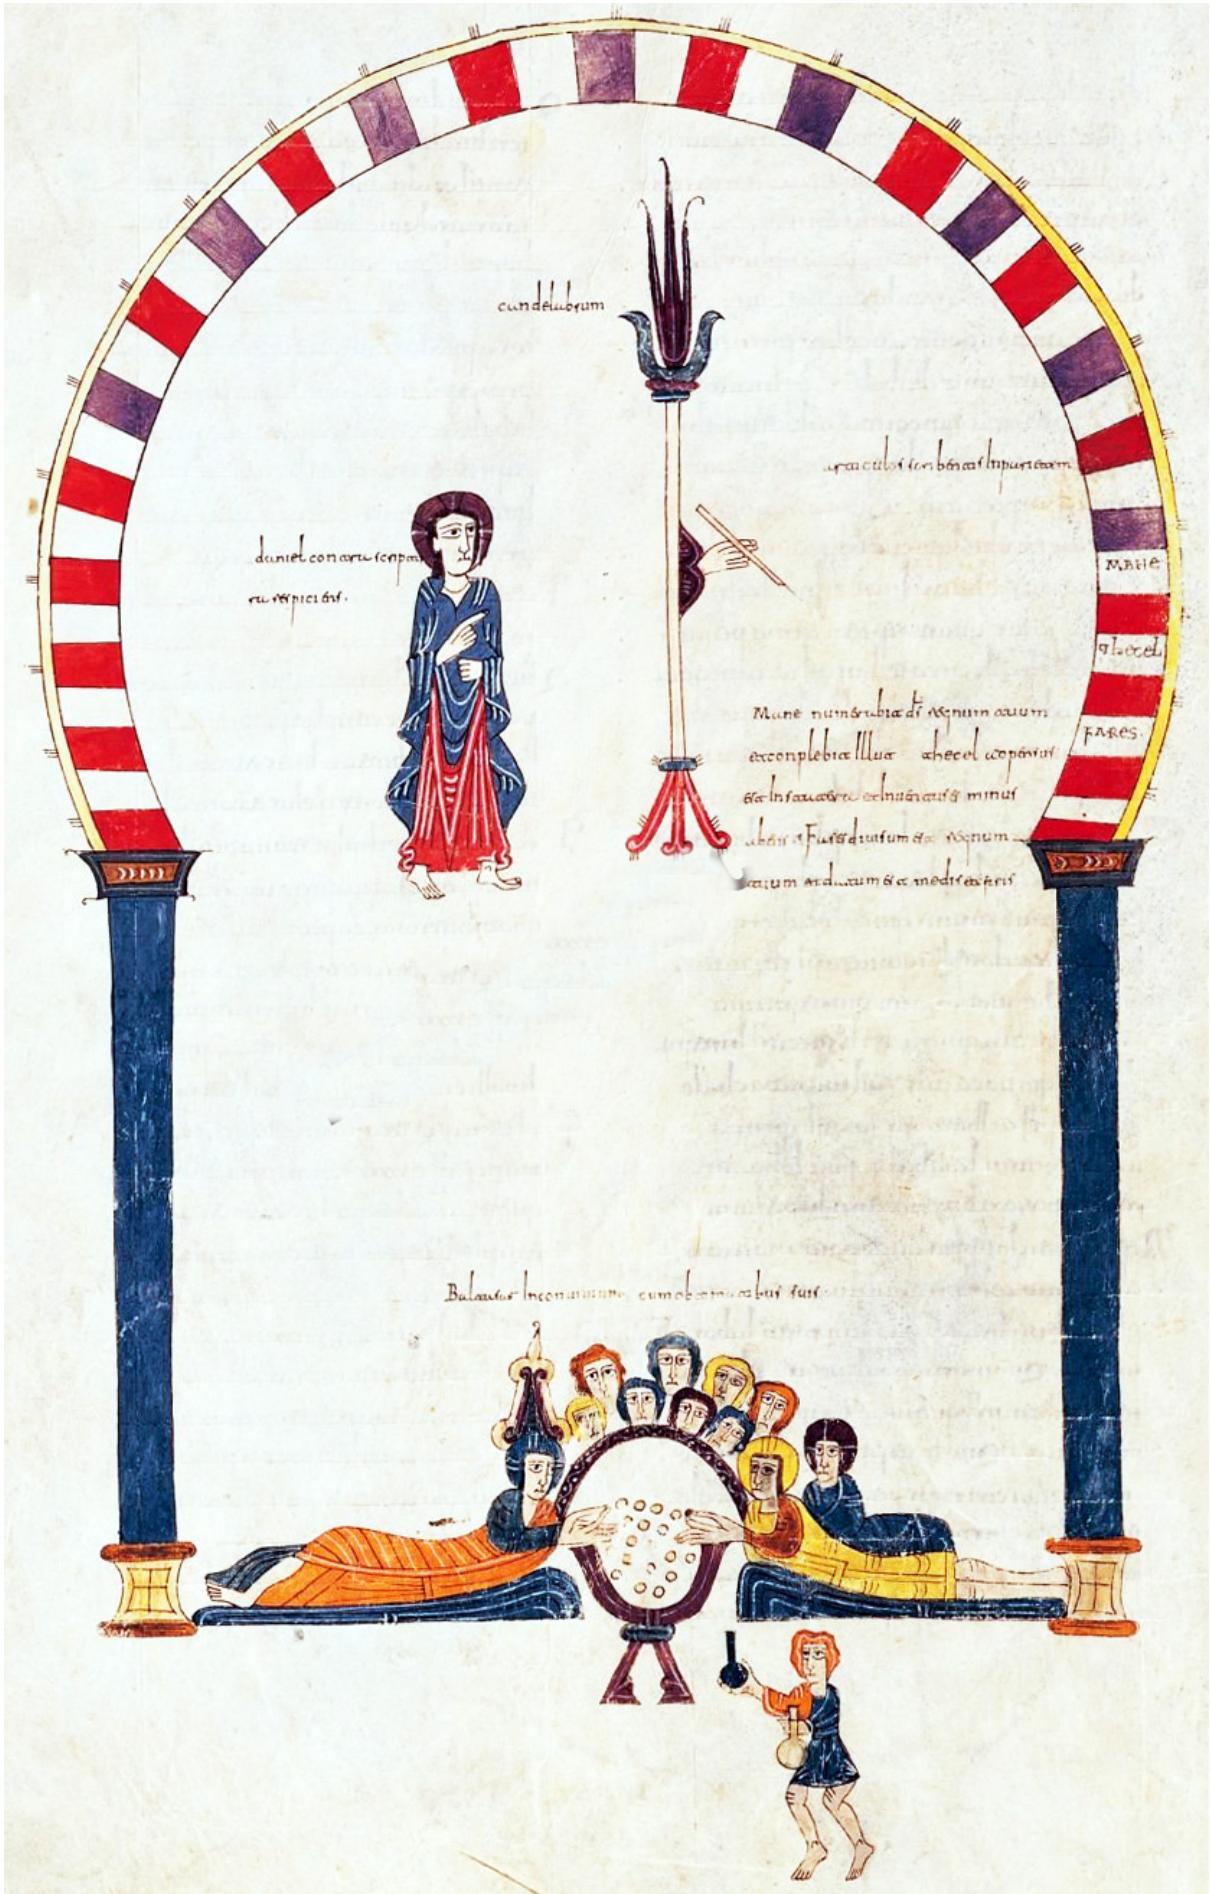 candelabrum
articulos scribentis In parietem
daniel contra scriptu
ra respiciens.
MANE
thecel
FARES.
Mane numerabit ds regnum tuum
et conplebit Illut thecel adpensus
est In statera et Inventus es minus
abens Fares divisum est regnum
tuum et datum est medis et persis
Baltasar In convivium cum obtimatibus suis